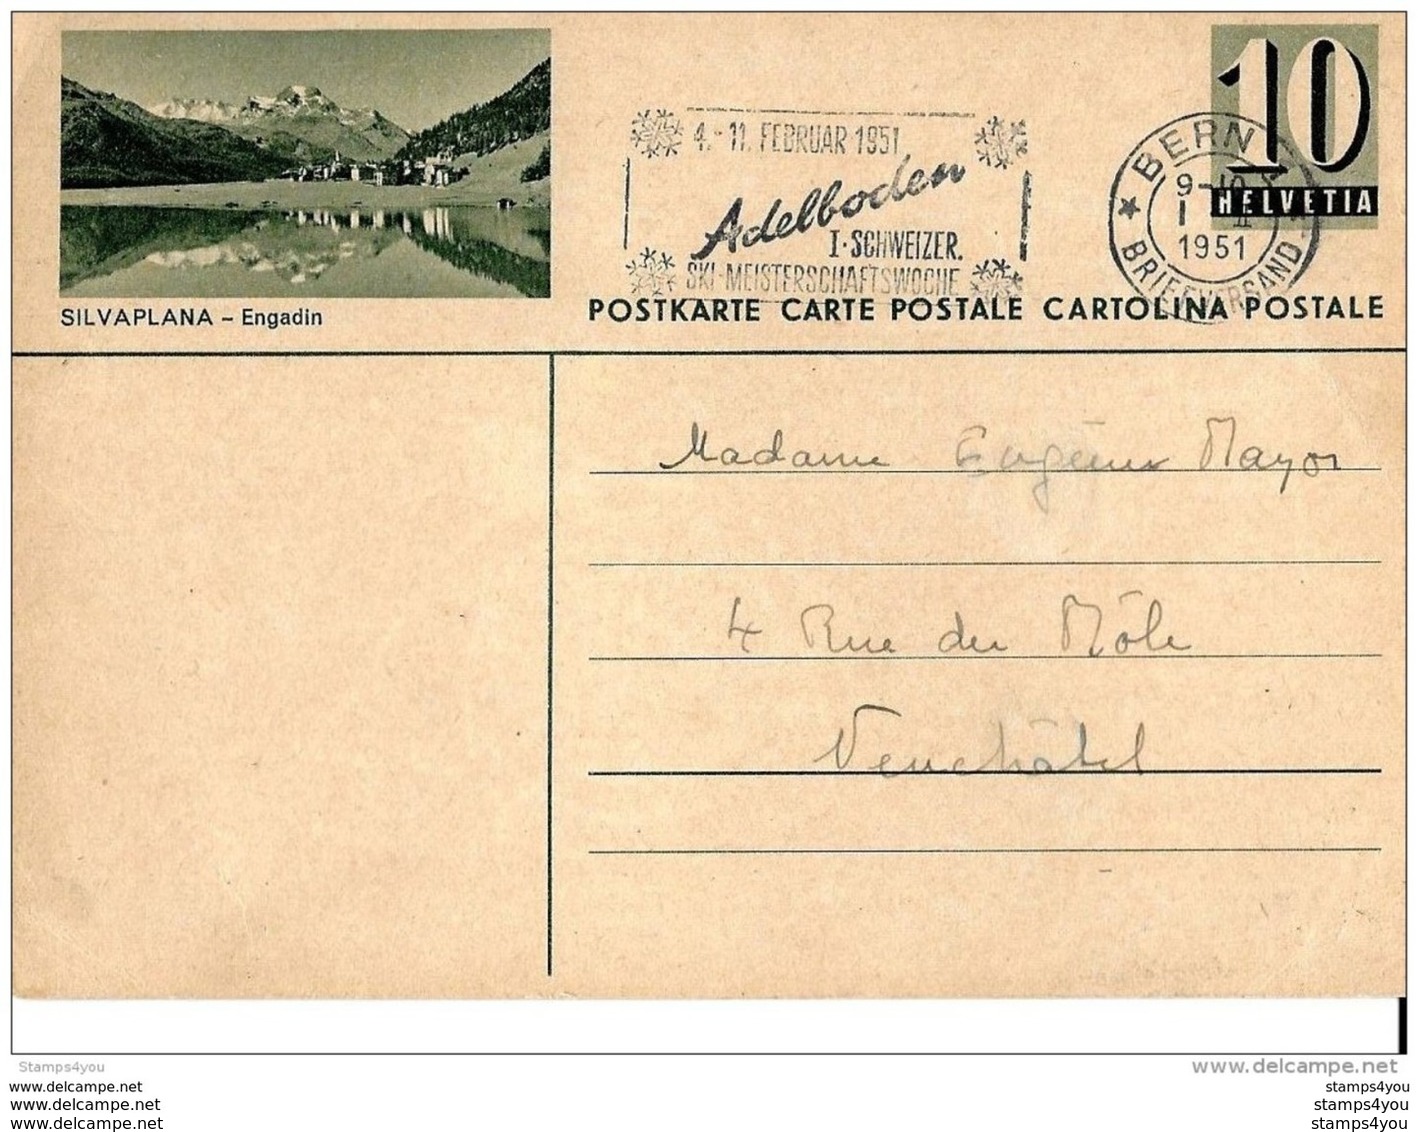 4.-11. FEBRUAR 1951
Adelboden
I. SCHWEIZER.
SKI-MEISTERSCHAFTSWOCHE
10
HELVETIA
BERN
9-10
1951
BRIEFVERSAND
SILVAPLANA – Engadin
POSTKARTE CARTE POSTALE CARTOLINA POSTALE
Madame Mayor
4 Rue du Môle
Neuchâtel
Stamps4you
delcampe.net
www.delcampe.net
www.delcampe.net
www.delcampe.net
stamps4you
stamps4you
stamps4you